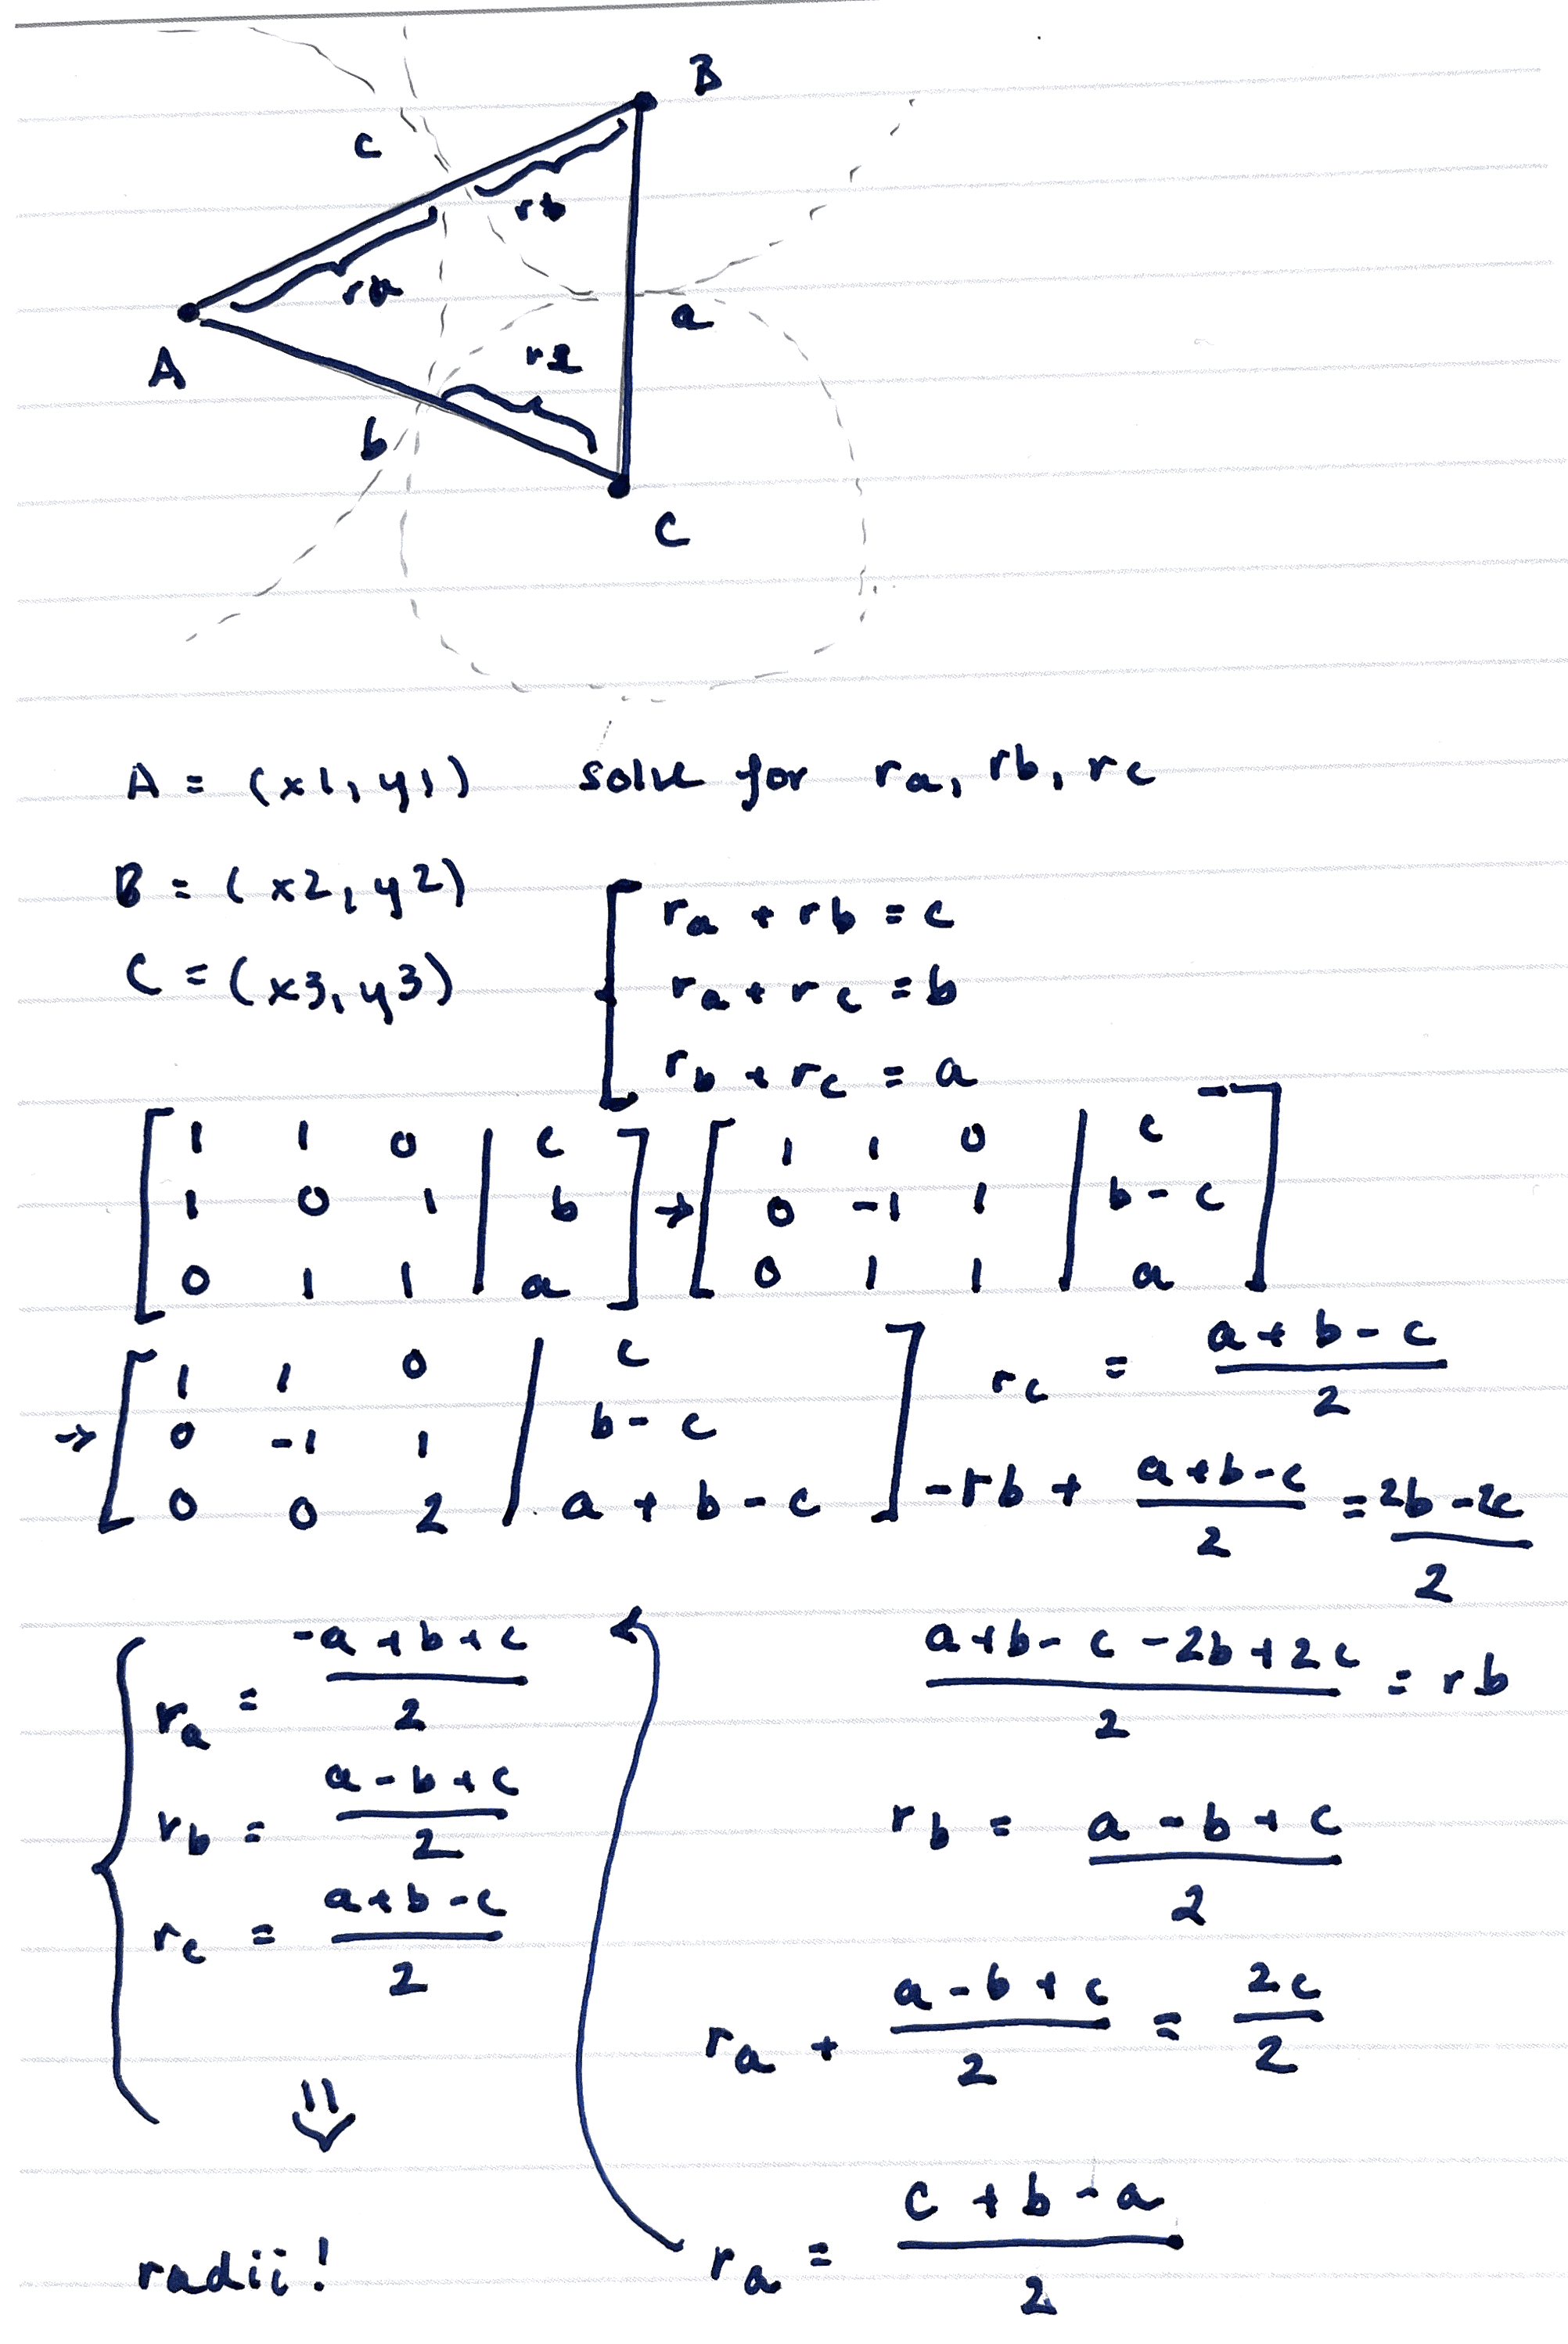 B
c
rb
ra
a
A
b
C
A = (x1, y1) solve for ra, rb, rc
B = (x2, y2)
C = (x3, y3)
ra + rb = c
ra + rc = b
rb + rc = a
[1 1 0 | c] → [1 1 0 | c]
[1 0 1 | b] [0 -1 1 | b - c]
[0 1 1 | a] [0 1 1 | a]
→ [1 1 0 | c]
[0 -1 1 | b - c]
[0 0 2 | a + b - c]
rc = (a + b - c)/2
-rb + (a + b - c)/2 = (2b - 2c)/2
(a + b - c - 2b + 2c)/2 = rb
rb = (a - b + c)/2
ra + (a - b + c)/2 = 2c/2
ra = (c + b - a)/2
ra = (-a + b + c)/2
rb = (a - b + c)/2
rc = (a + b - c)/2
⇓
radii!